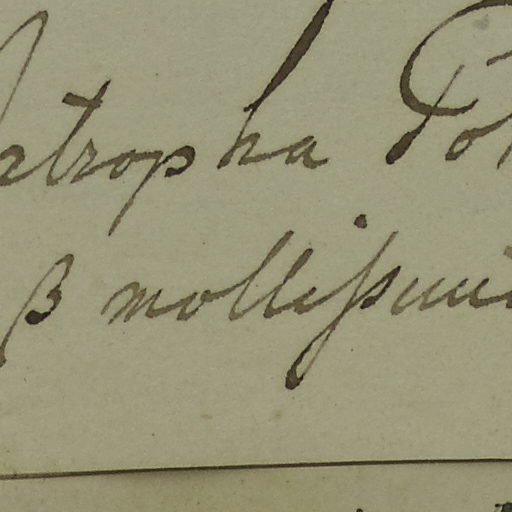 Jatropha Po
β mollissim